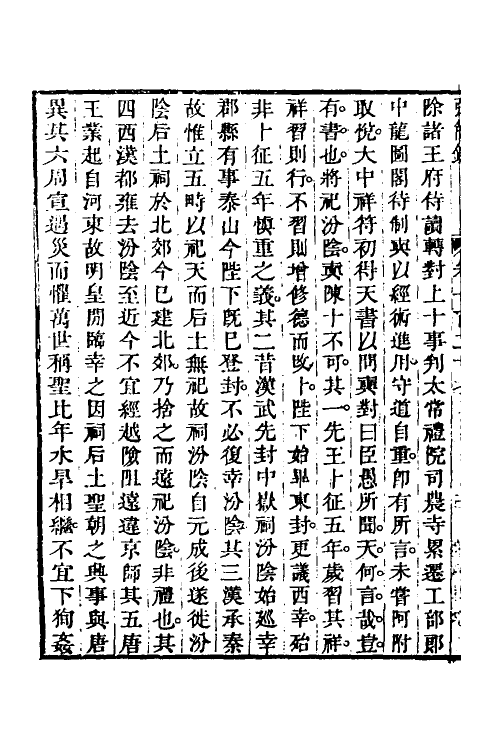 除諸王府侍讀轉對上十事判太常禮院司農寺累遷工部郎
中龍圖閣待制奭以經術進用守道自重卽有所言未嘗阿附
取悅大中祥符初得天書以問奭對曰臣愚所聞天何言哉豈
有書也將祀汾陰奭陳十不可其一先王卜征五年歲習其祥
祥習則行不習則增修德而改卜陛下始畢東封更議西幸殆
非卜征五年愼重之義其二昔漢武先封中嶽祠汾陰始巡幸
郡縣有事泰山今陛下旣已登封不必復幸汾陰其三漢承秦
故惟立五畤以祀天而后土無祀故祠汾陰自元成後遂徙汾
陰后土祠於北郊今已建北郊乃捨之而遠祀汾陰非禮也其
四西漢都雍去汾陰至近今不宜經越險阻遠違京師其五唐
王業起自河東故明皇閒臨幸之因祠后土聖朝之興事與唐
異其六周宣遇災而懼萬世稱聖比年水旱相繼不宜下狥姦